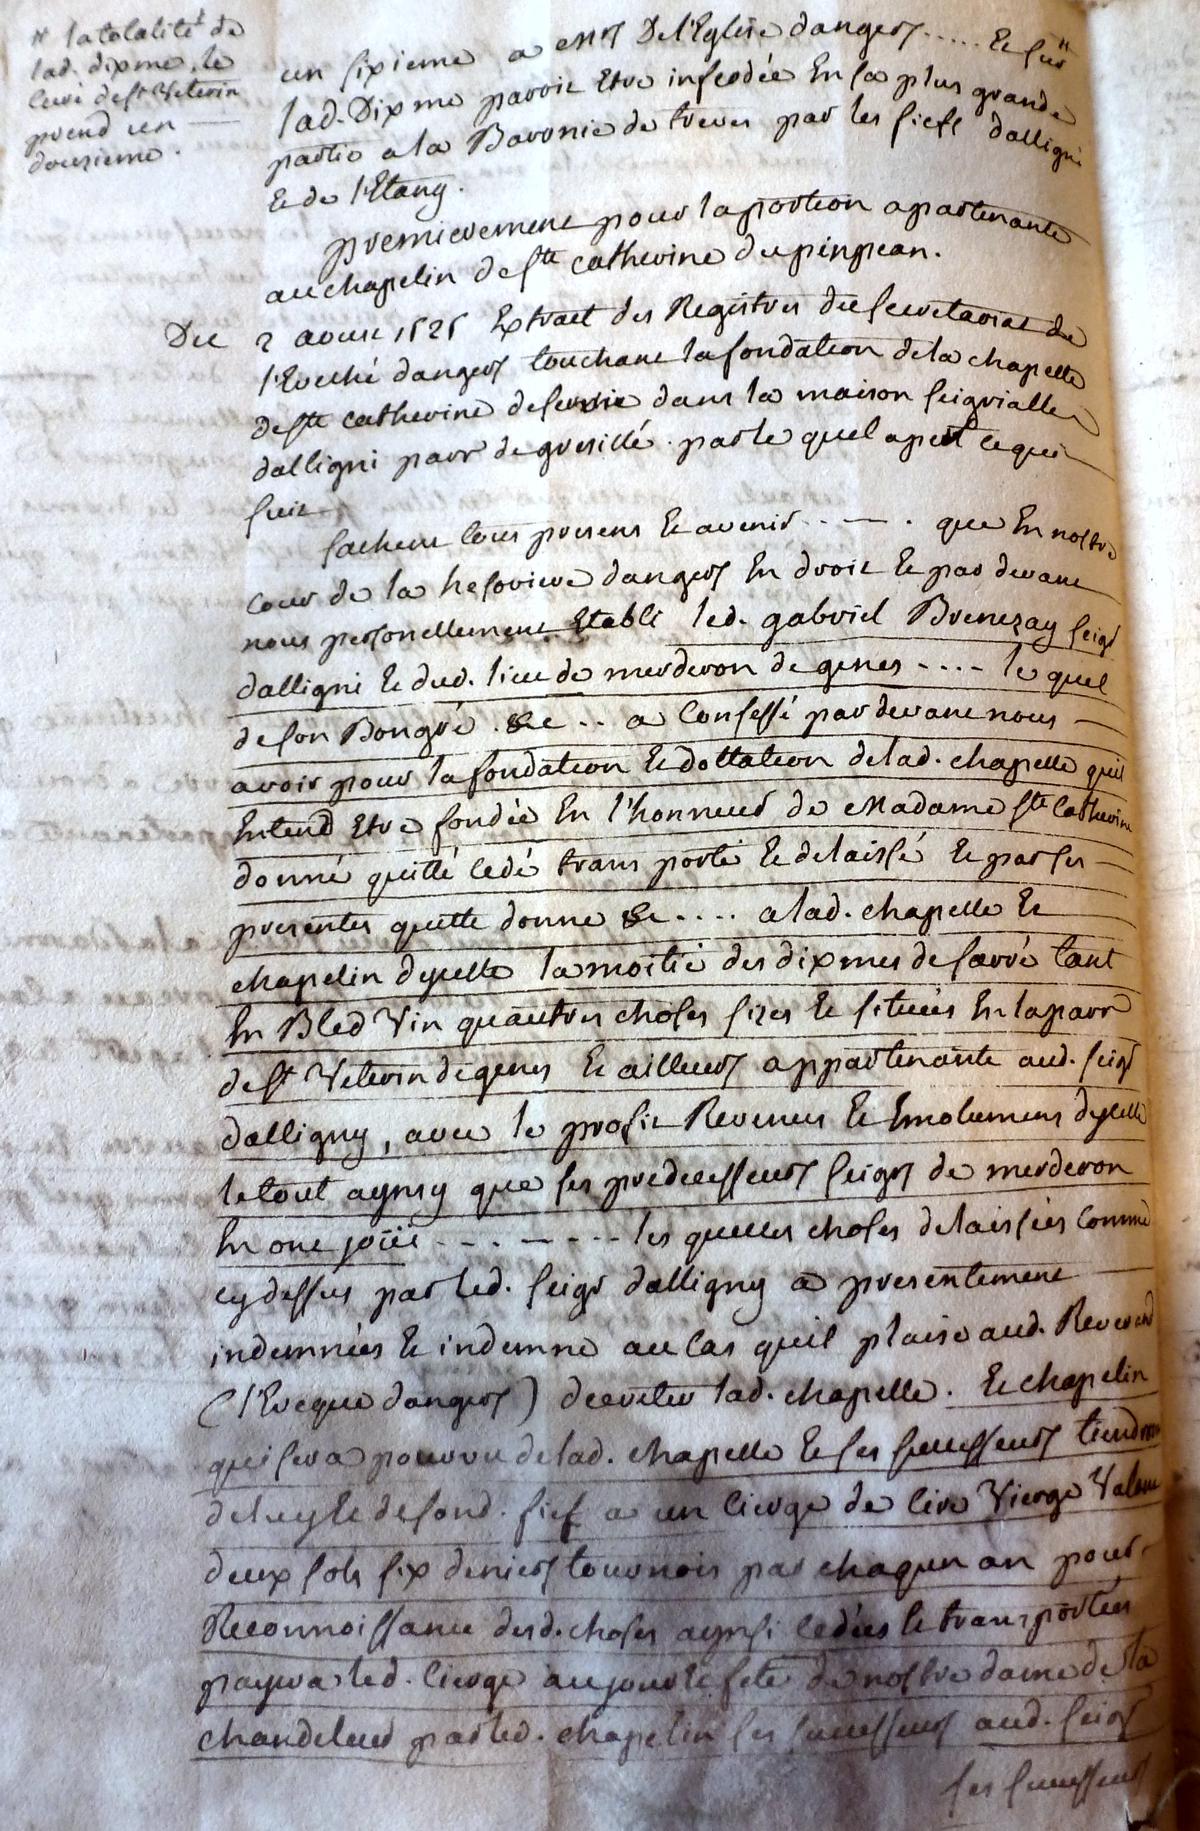 # la totalité de
lad. dixme, le
curé de st Veterin
prend un —
dousieme.
un sixieme a Mrs De l'Eglise dangers ..... Et sur #
lad. Dixme paroit Etre infeodée En sa plus grande
partie a la Baronie de treves par les fiefs dalligni
Et de l'Etang.
premierement pour la portion apartenante
au chapelin de Ste catherine du pinpean.
Du 2 aoust 1525 Extrait des Registres du secretariat de
l'Eveché dangers touchant la fondation de la chapelle
de Ste catherine deservie dans la maison seigrialle
dalligni parr de gresillé. par le quel apert ce qui
suit
sachent tous presens Et avenir ..—. que En nostre
cour de la heso​riere dangers En droit Et par devant
nous personellement Etabli led. gabriel Brenezay seigr
dalligni Et dud. lieu de merderon de genes .... le quel
de son Bongré. &c .. a Confessé par devant nous —
avoir pour la fondation Et dottation de lad. chapelle quil
Entend Etre fondée En l'honneur de Madame Ste Catherine
donné quitté cedé trans porté Et delaissé Et par ses —
presentes quitte donne &c .... a lad. chapelle Et
chapelin dycelle la moitié des dixmes de sarré tant
En Bled Vin quautres choses sizes Et situées En la parr
de st Veterin de genes Et ailleurs appartenante aud. seigr
dalligny, avec le profit Revenus Et Emolumens dycelle
le tout aynsy que ses predecesseurs seigrs de merderon
En ont joüi ---.—.--- les quelles choses delaissées comme
cy dessus par led. seigr dalligny a presentement —
indemnées Et indemne au cas quil plaise aud. Reverend
(l'Eveque dangers) decreter lad. chapelle. Et chapelin
qui sera pourvu de lad. chapelle Et ses successeurs tiendront
deluy Et de sond. fief a un cierge de cire Vierge Valant
deux sols six deniers tournois par chaqun an pour-
Reconnoissance desd. choses aynsi cedées Et transportées
payera led. cierge au jour Et fete de nostre dame de la
chandeleur par led. chapelin ses successeurs aud. seigr
ses successeurs